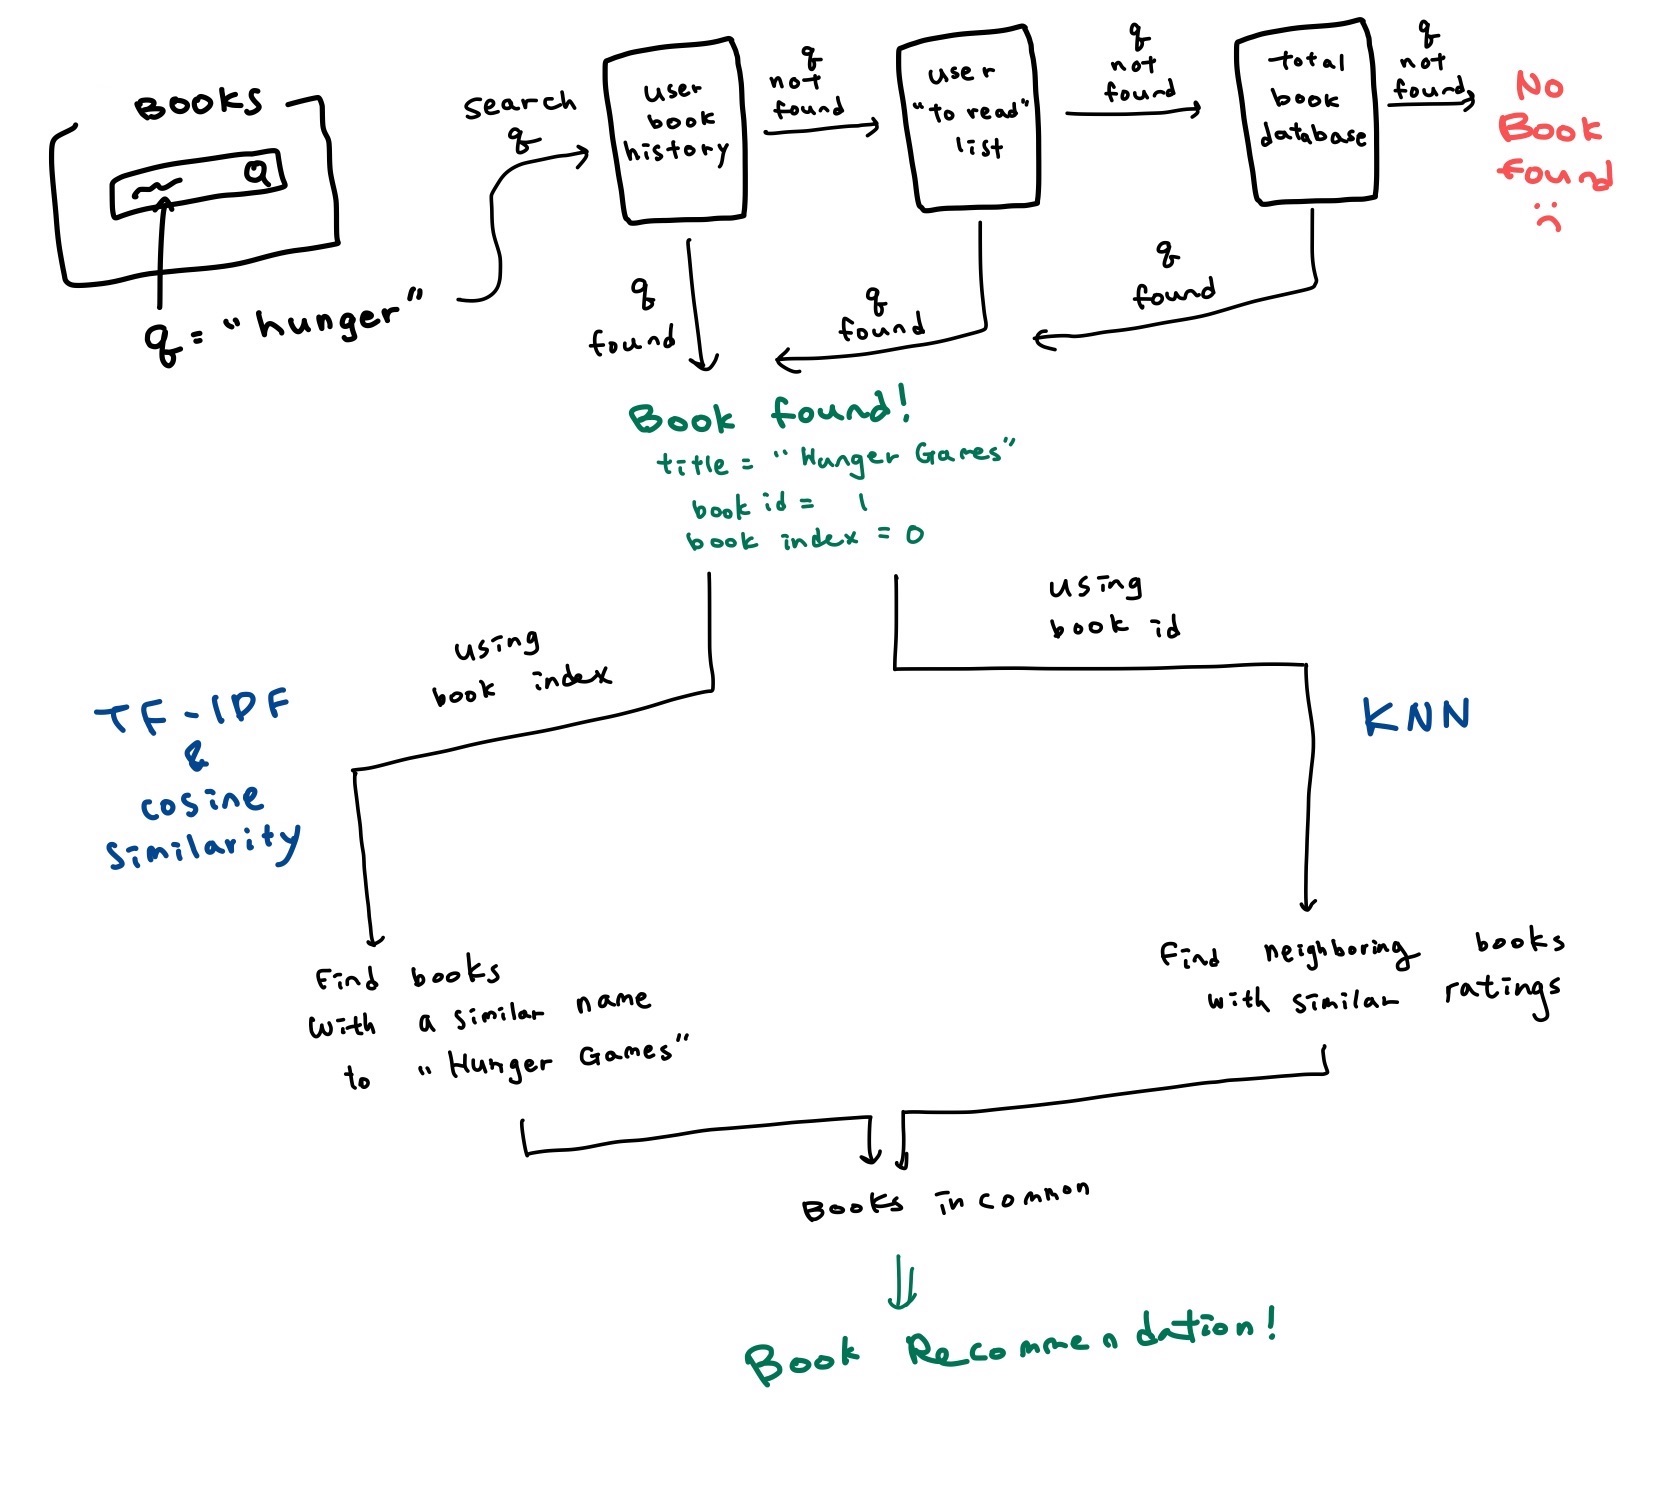 BOOKS
q = "hunger"
search
q
user
book
history
q
not
found
user
"to read"
list
q
not
found
total
book
database
q
not
found
No
Book
found
:(
q
found
q
found
q
found
Book found!
title = "Hunger Games"
book id = 1
book index = 0
using
book index
using
book id
TF-IDF
&
cosine
similarity
KNN
Find books
with a similar name
to "Hunger Games"
Find neighboring books
with similar ratings
Books in common
Book Recommendation!